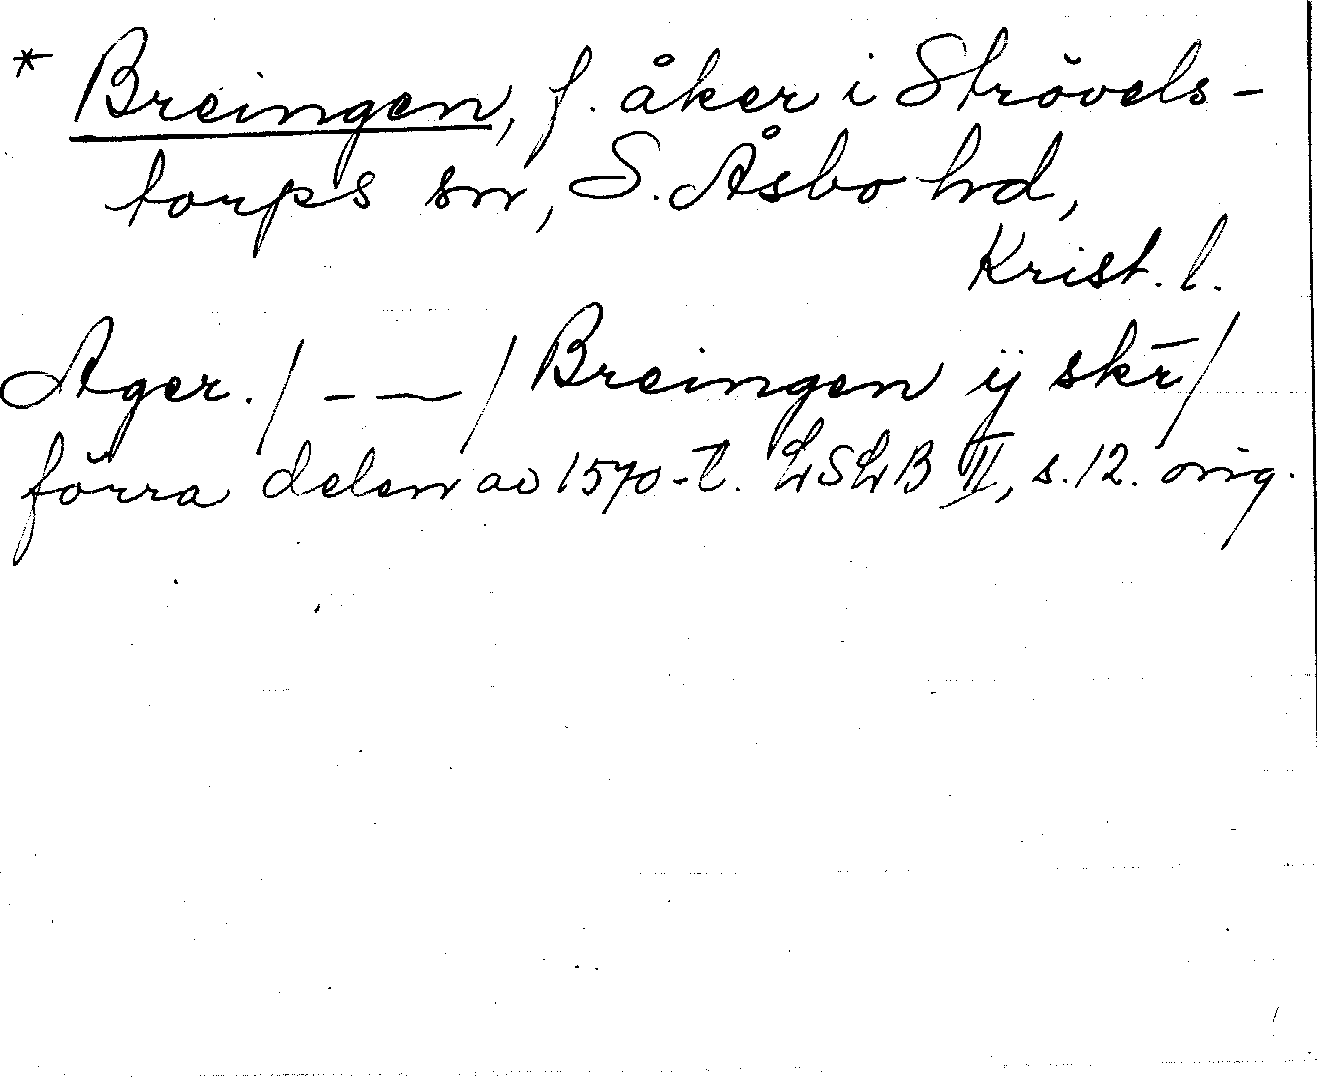 * Breingen, f. åker i Strövels-
torps sn, S. Åsbo hd,
Krist. l.
Ager. / - — / Breingen ij skr̄ /
förra delen av 1570-t. LSLB II, s. 12. orig.